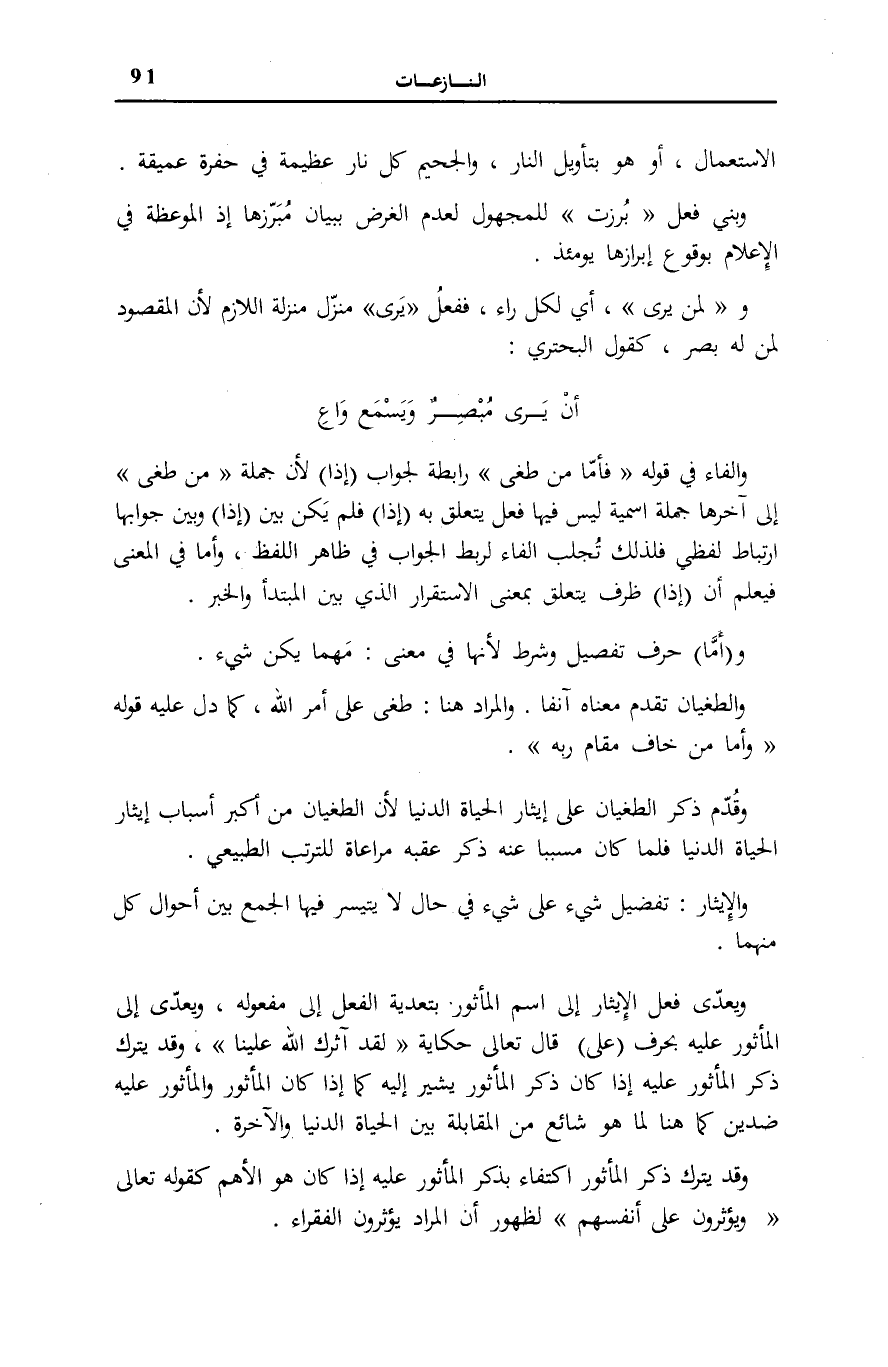 91
النـــازعـــات
الاستعمال ، أو هو بتأويل النار ، والجحيم كل نار عظيمة في حفرة عميقة .
وبني فعل « بُرزت » للمجهول لعدم الغرض ببيان مُبَرّزها إذ الموعظة في
الإعلام بوقوع إبرازها يومئذ .
و « لمن يرى » ، أي لكل راء ، ففعلُ «يَرى» منزّل منزلة اللازم لأن المقصود
لمن له بصر ، كقول البحتري :
أنْ يَـــرى مُبْصِـــرٌ وَيَسْمَع وَاعِ
والفاء في قوله « فأمّا من طغى » رابطة لجواب (إذا) لأن جملة « من طغى »
إلى آخرها جملة اسمية ليس فيها فعل يتعلق به (إذا) فلم يَكن بين (إذا) وبين جوابها
ارتباط لفظي فلذلك تُجلب الفاء لربط الجواب في ظاهر اللفظ ، وأما في المعنى
فيعلم أن (إذا) ظرف يتعلق بمعنى الاستقرار الذي بين المبتدأ والخبر .
و(أَمَّا) حرف تفصيل وشرط لأنها في معنى : مَهما يكن شيء .
والطغيان تقدم معناه آنفا . والمراد هنا : طغى على أمر الله ، كما دل عليه قوله
« وأما من خاف مقام ربه » .
وقُدّم ذكر الطغيان على إيثار الحياة الدنيا لأن الطغيان من أكبر أسباب إيثار
الحياة الدنيا فلما كان مسببا عنه ذكر عقبه مراعاة للترتب الطبيعي .
والإيثار : تفضيل شيء على شيء في حال لا يتيسر فيها الجمع بين أحوال كل
منهما .
ويعدّى فعل الإيثار إلى اسم المأثور بتعدية الفعل إلى مفعوله ، ويعدّى إلى
المأثور عليه بحرف (على) قال تعالى حكاية « لقد آثرك الله علينا » ، وقد يترك
ذكر المأثور عليه إذا كان ذكر المأثور يشير إليه كما إذا كان المأثور والمأثور عليه
ضدين كما هنا لما هو شائع من المقابلة بين الحياة الدنيا والآخرة .
وقد يترك ذكر المأثور اكتفاء بذكر المأثور عليه إذا كان هو الأهم كقوله تعالى
« ويؤثرون على أنفسهم » لظهور أن المراد يؤثرون الفقراء .